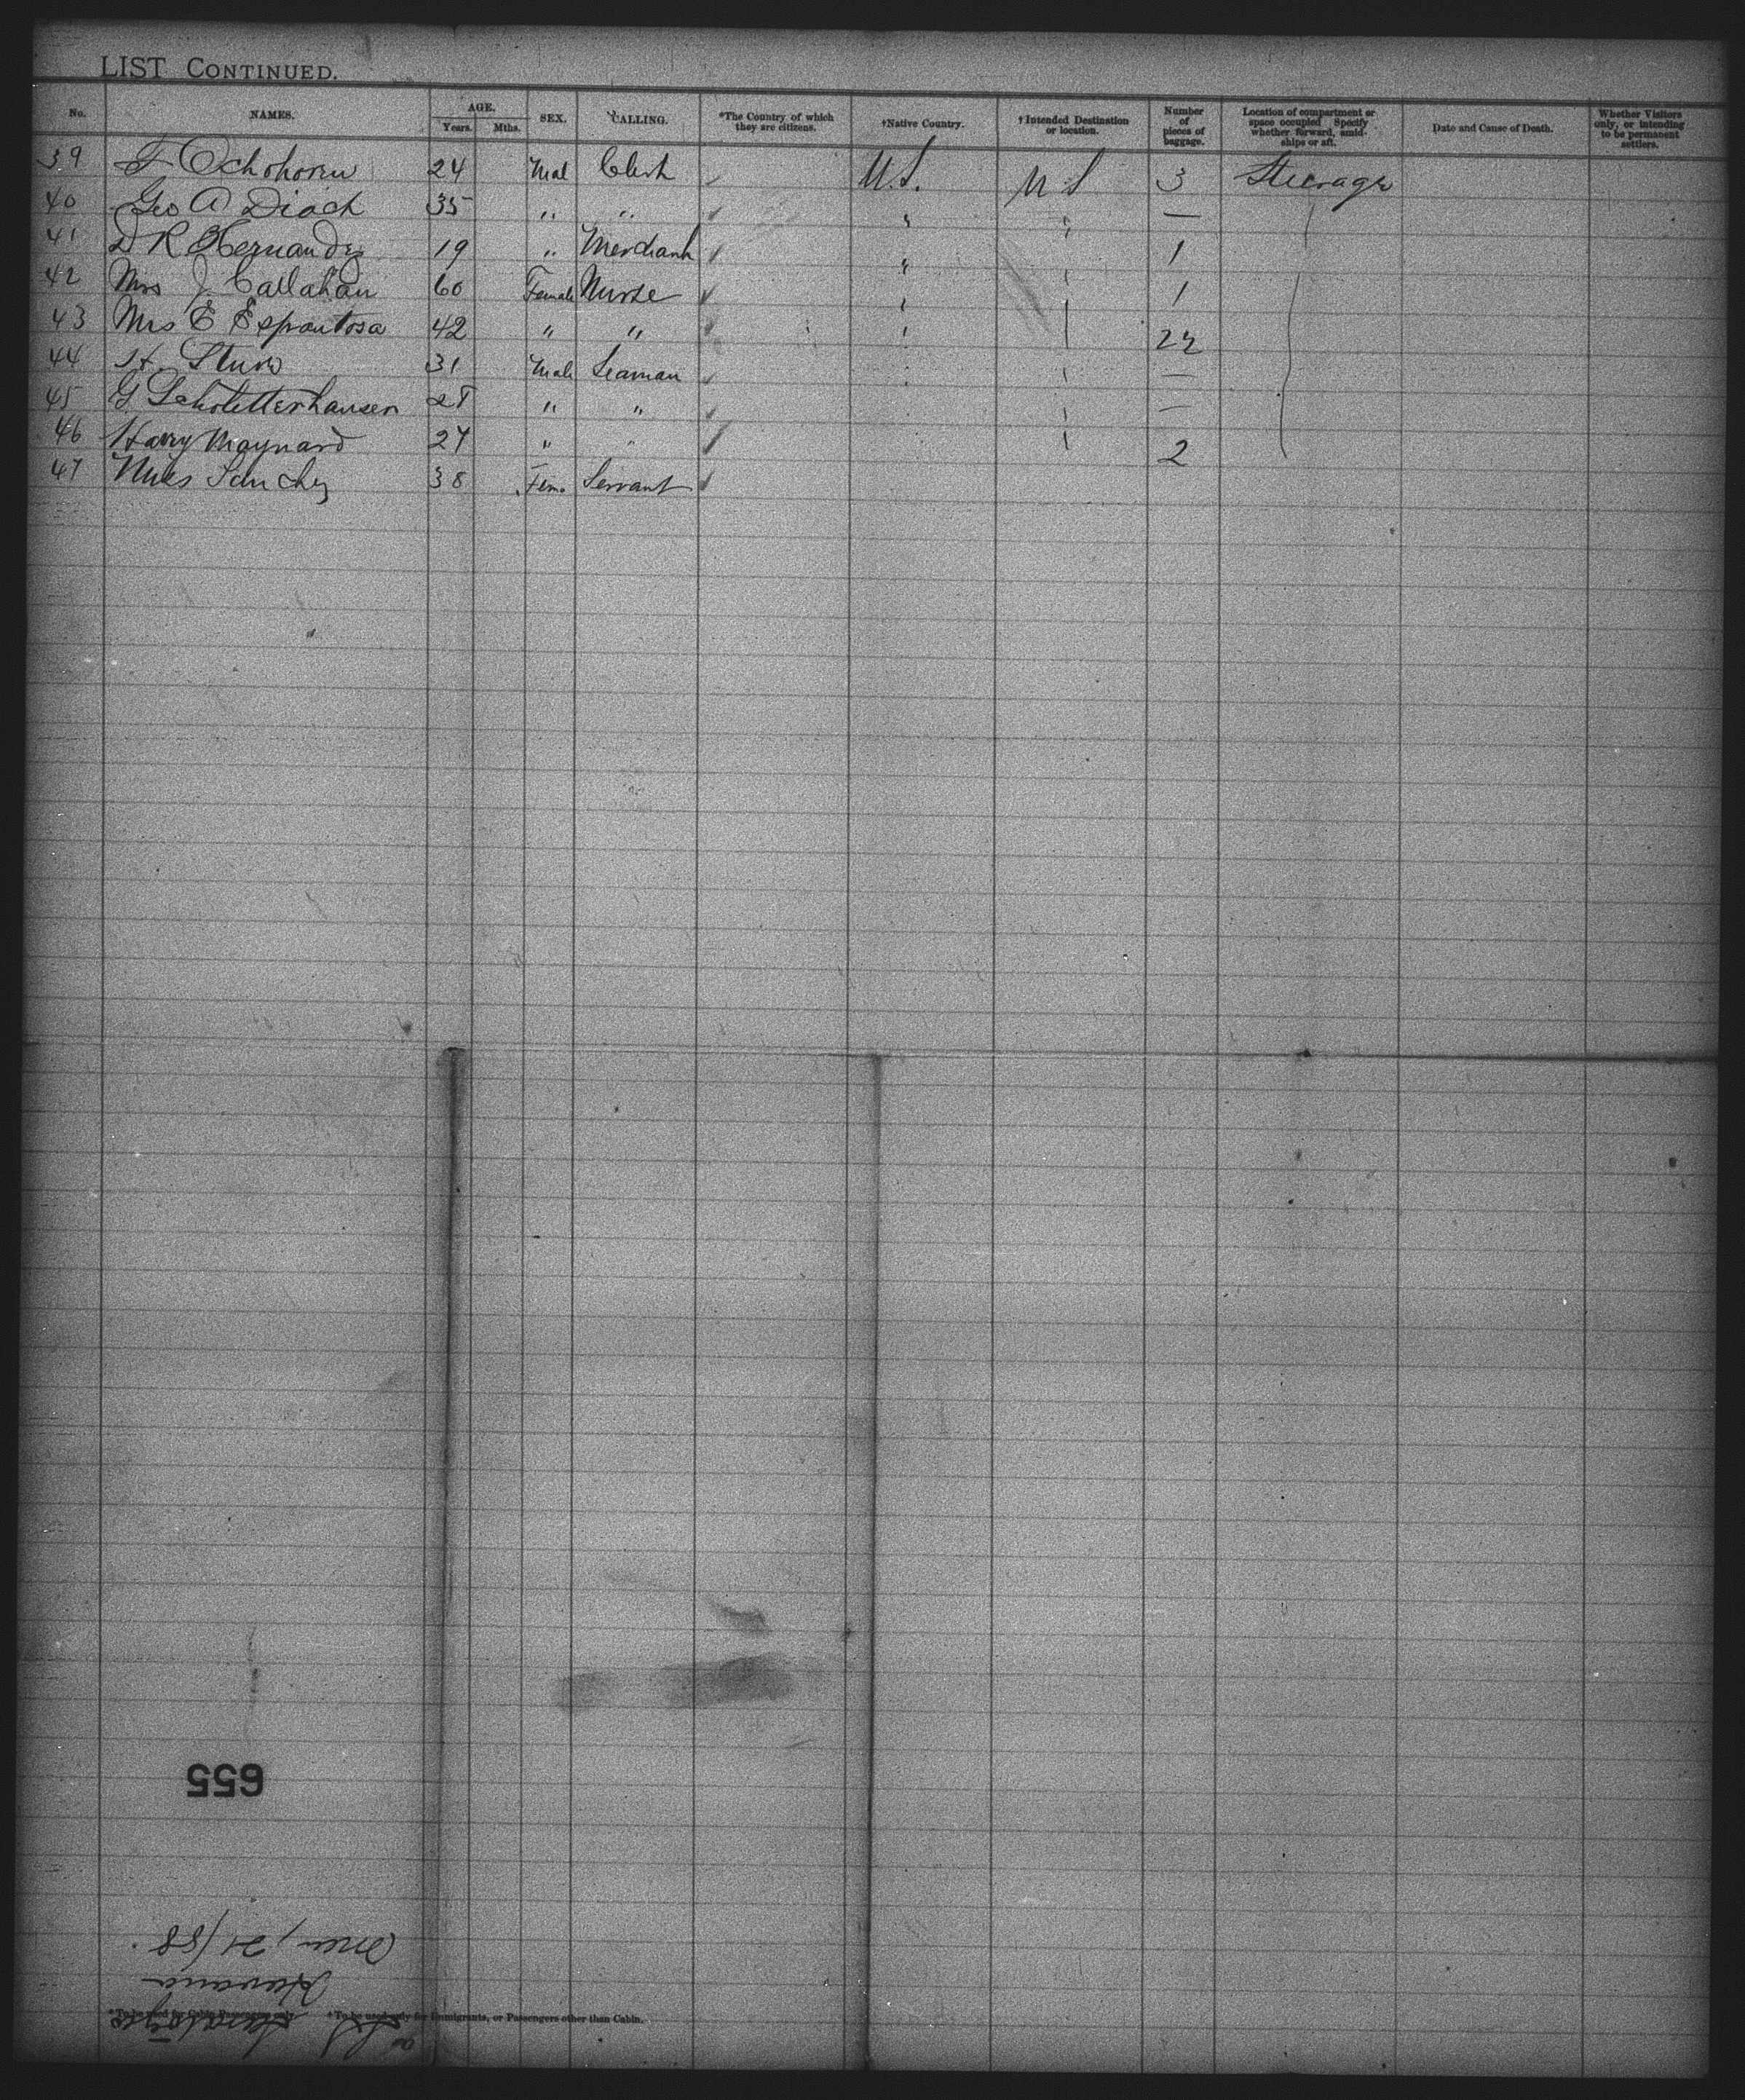 LIST CONTINUED.
No. NAMES. AGE. Years. Mths. SEX. CALLING. *The Country of which they are citizens. †Native Country. †Intended Destination or location. Number of pieces of baggage. Location of compartment or space occupied Specify whether forward, amidships or aft. Date and Cause of Death. Whether Visitors only, or intending to be permanent settlers.
39 F 24 Mal Clerk U.S. U S 3 Steerage
40 Geo A 35 " " " " —
41 D R Hernandez 19 " Merchant " " 1
42 Mrs J Callahan 60 Female Nurse " " 1
43 Mrs E Espantosa 42 " " " "
44 H. 31 Male Seaman " " —
45 G 28 " " " —
46 Harry Maynard 27 " " " 2
47 Sanchez 38 Fem. Servant
655
21/88
Havana
Saratoga
*To be used for Cabin Passengers only. †To be used only for Immigrants, or Passengers other than Cabin.